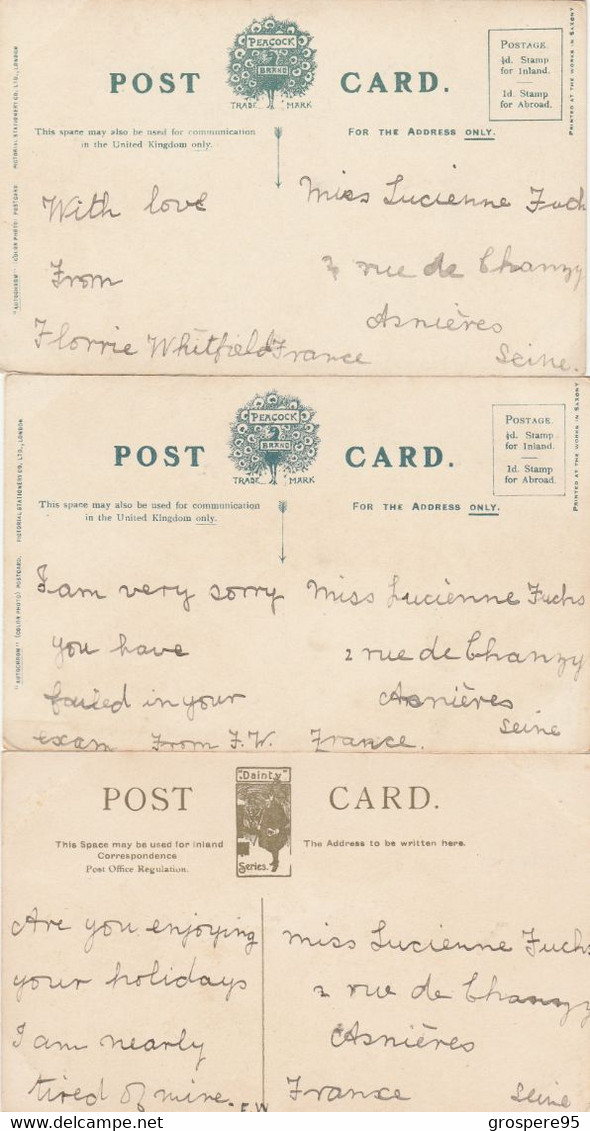 POST CARD.
PEACOCK
BRAND
TRADE MARK
POSTAGE.
½d. Stamp
for Inland.
1d. Stamp
for Abroad.
PRINTED AT THE WORKS IN SAXONY
This space may also be used for communication
in the United Kingdom only.
FOR THE ADDRESS ONLY.
"AUTOCHROM" (COLOR PHOTO) POSTCARD. PICTORIAL STATIONERY CO., LTD., LONDON
With love
From
Florrie Whitfield
Miss Lucienne Fuch
2 rue de Chanzy
Asnières
France Seine.
POST CARD.
PEACOCK
BRAND
TRADE MARK
POSTAGE.
½d. Stamp
for Inland.
1d. Stamp
for Abroad.
PRINTED AT THE WORKS IN SAXONY
This space may also be used for communication
in the United Kingdom only.
FOR THE ADDRESS ONLY.
"AUTOCHROM" (COLOR PHOTO) POSTCARD. PICTORIAL STATIONERY CO., LTD., LONDON
I am very sorry
you have
failed in your
exam From F.W.
Miss Lucienne Fuchs
2 rue de Chanzy
Asnières
Seine
France.
POST CARD.
"Dainty"
Series.
This Space may be used for Inland
Correspondence
Post Office Regulation.
The Address to be written here.
Are you enjoying
your holidays
I am nearly
tired of mine. F.W
Miss Lucienne Fuchs
2 rue de Chanzy
Asnières
France Seine
grospere95